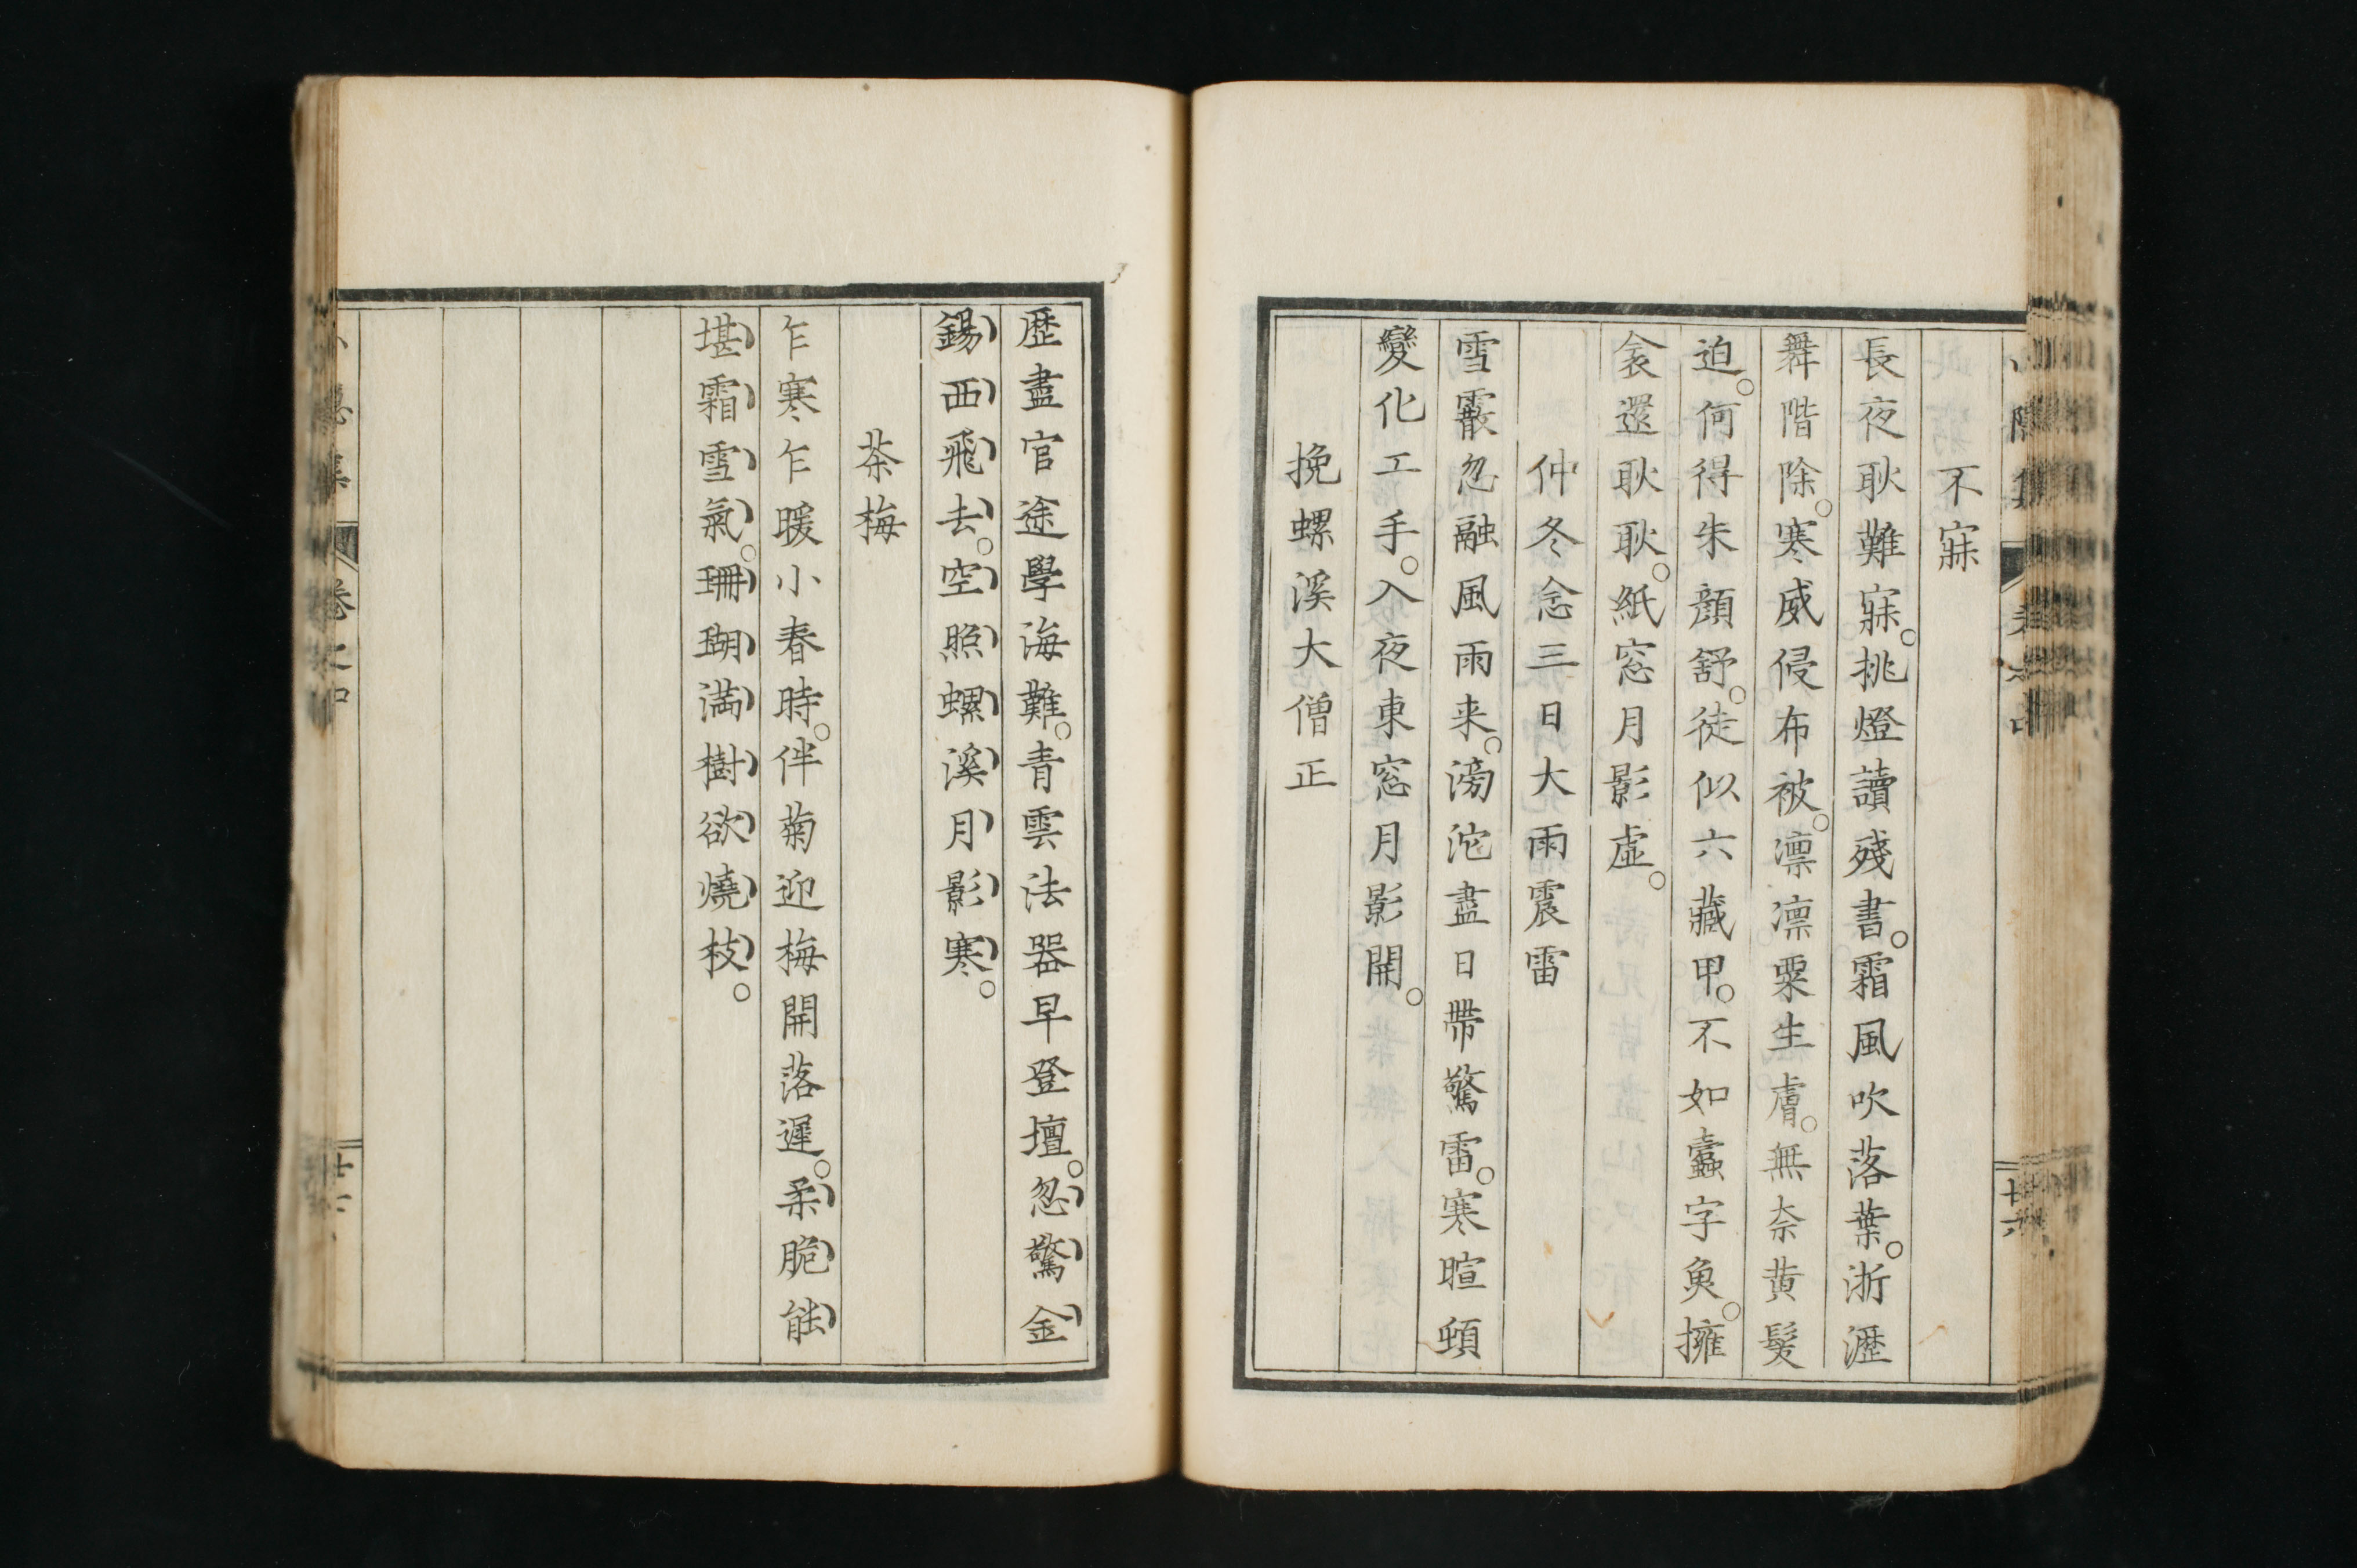 不寐
長夜耿難寐。挑燈讀殘書。霜風吹落葉。浙瀝
舞階除。寒威侵布被。凛凛粟生膚。無奈黄髮
迫。何得朱顔舒。徒似六藏甲。不如蠹字魚。擁
衾還耿耿。紙窓月影虚。
仲冬念三日大雨震雷
雪霰忽融風雨来。滂沱盡日帶驚雷。寒暄頓
變化工手。入夜東窓月影開。
挽螺溪大僧正
歴盡官途學海難。青雲法器早登壇。忽驚金
錫西飛去。空照螺溪月影寒。
茶梅
乍寒乍暖小春時。伴菊迎梅開落遲。柔脆能
堪霜雪氣。珊瑚満樹欲燒枝。